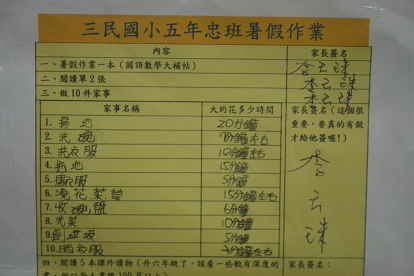 三民國小五年忠班暑假作業
內容 家長簽名
一、暑假作業一本（國語數學大補帖） 李云珠
二、閱讀單2張 李云珠
三、做10件家事 李云珠
家事名稱 大約花多少時間 家長簽名（這個很重要，要真的有做才給他簽喔！）
1. 掃地 20分鐘
2. 洗碗 分鐘左右
3. 洗衣服 10分鐘左右
4. 拖地 15分鐘
5. 衣服 5分鐘
6. 澆花、菜草 15分鐘左右
7. 收碗盤 6分鐘
8. 洗菜 10分鐘
9. 倒垃圾 5分鐘
10. 晒衣服 分鐘左右
李云珠
四、閱讀5本課外讀物（升六年級了，該看一些較有深度的 家長簽名：